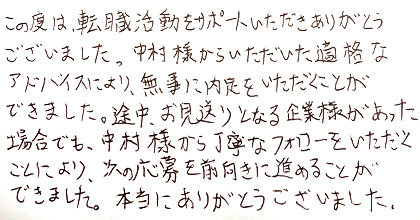 この度は、転職活動をサポートいただきありがとう
ございました。中村様からいただいた適格な
アドバイスにより、無事に内定をいただくことが
できました。途中、お見送りとなる企業様があった
場合でも、中村様から丁寧なフォローをいただく
ことにより、次の応募を前向きに進めることが
できました。本当にありがとうございました。